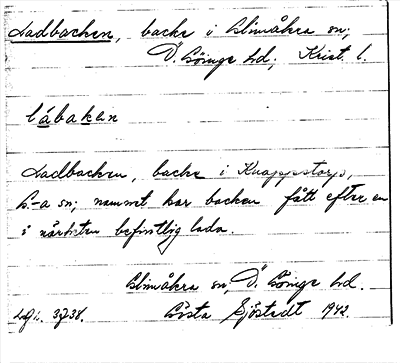 Ladbacken, backe i Glimåkra sn;
Ö. Göinge hd; Krist. l.
lábaken
Ladbacken, backe i Knappstorp,
G-a sn; namnet har backen fått efter en
i närheten befintlig lada.
Glimåkra sn, Ö. Göinge hd.
Gösta Sjöstedt 1942.